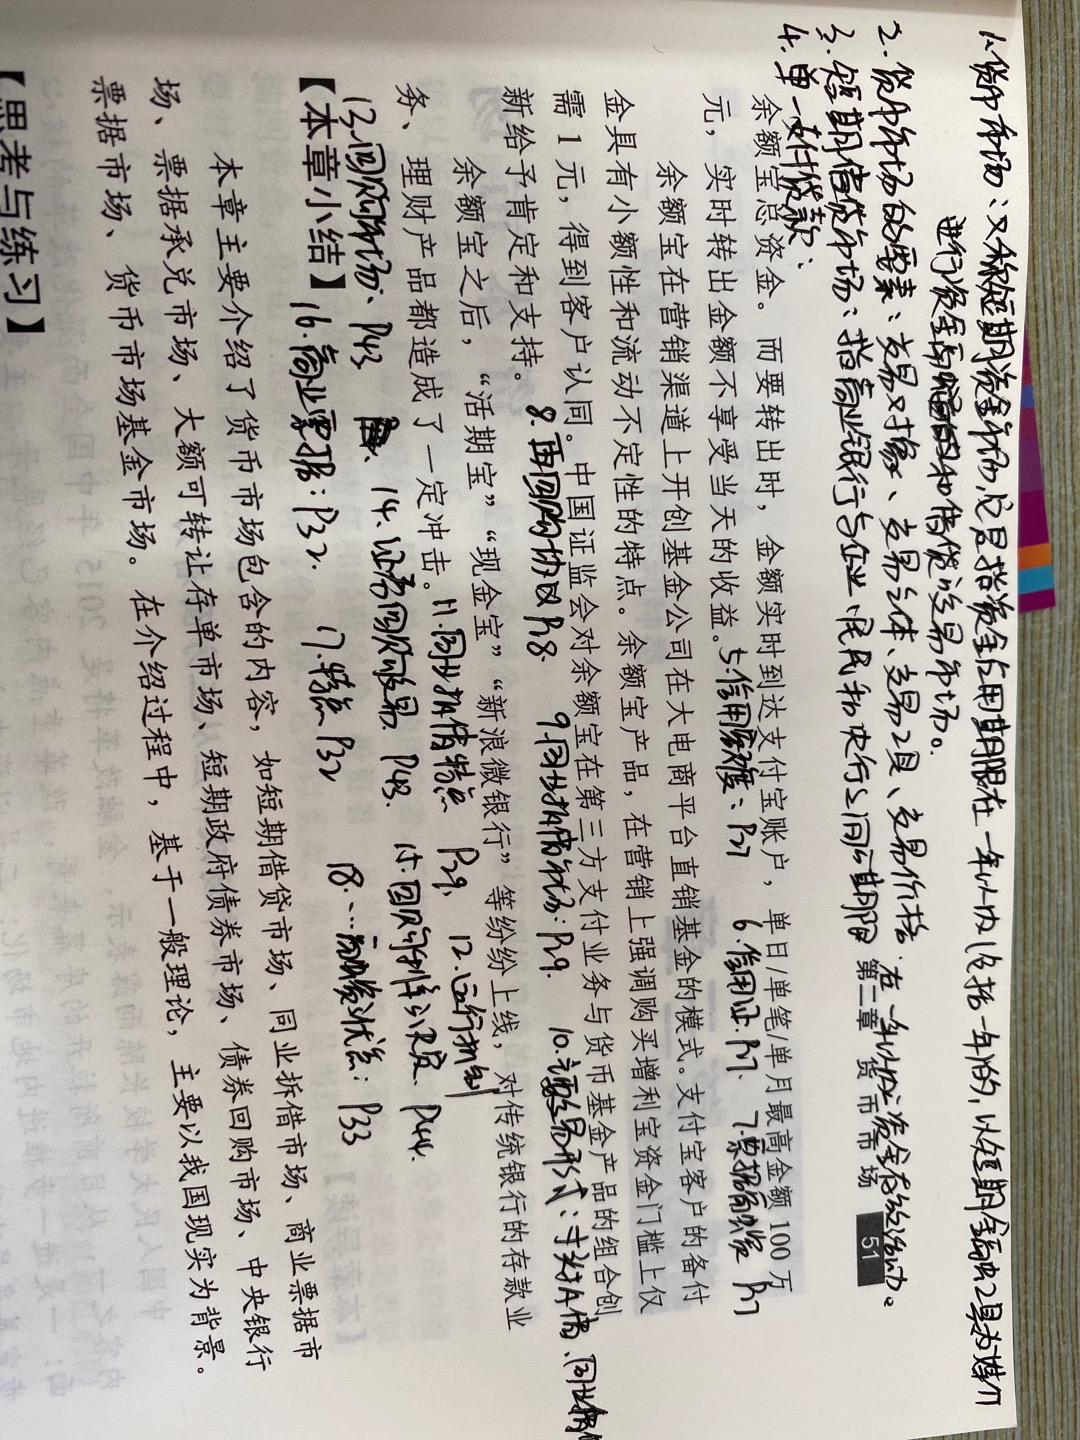 1.货币市场：又称短期资金市场，它是指资金占用期限在一年以内（包括一年）的，以短期金融工具为媒介
进行资金融通和借贷的交易市场。
2.货币市场的要素：交易对象、交易主体、交易工具、交易价格
3.短期借贷市场：指商业银行与企业、居民和央行之间，期限在一年以内资金借贷活动。
4.单一支付贷款：
第二章 货币市场 51
余额宝总资金。而要转出时，金额实时到达支付宝账户，单日/单笔/单月最高金额 100 万
元，实时转出金额不享受当天的收益。
5.信用额度：P27 6.信用证.P27. 7.票据融资 P27
余额宝在营销渠道上开创基金公司在大电商平台直销基金的模式。支付宝客户的备付
金具有小额性和流动不定性的特点。余额宝产品，在营销上强调购买增利宝资金门槛上仅
需 1 元，得到客户认同。中国证监会对余额宝在第三方支付业务与货币基金产品的组合创
新给予肯定和支持。
8.再回购协议 P28. 9.同业拆借市场：P29. 10.主要交易形式：头寸拆借、同业借贷
余额宝之后，“活期宝”“现金宝”“新浪微银行”等纷纷上线，对传统银行的存款业
务、理财产品都造成了一定冲击。
11.同业拆借特点 P29. 12.运行机制
13.回购市场：P43 14.证券回购交易. P43. 15.回购利率的决定 P44.
【本章小结】
16.商业票据：P32. 17.特点.P32 18.融资状态：P33
本章主要介绍了货币市场包含的内容，如短期借贷市场、同业拆借市场、商业票据市
场、票据承兑市场、大额可转让存单市场、短期政府债券市场、债券回购市场、中央银行
票据市场、货币市场基金市场。在介绍过程中，基于一般理论，主要以我国现实为背景。
【思考与练习】